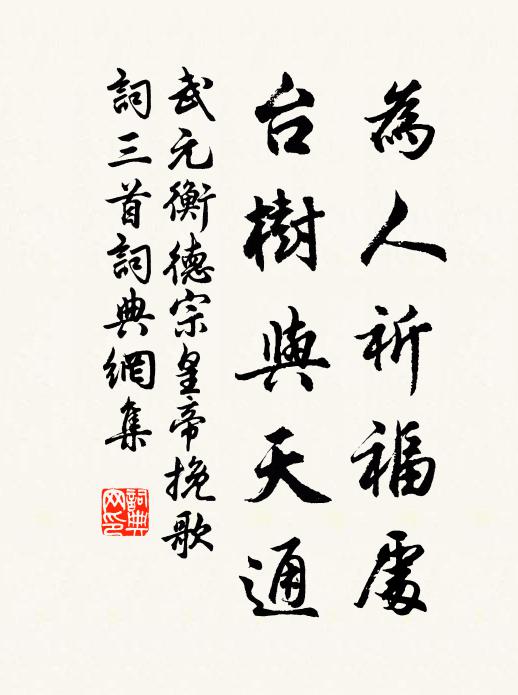 為人祈福處
台樹與天通
武元衡德宗皇帝挽歌
詞三首詞典網集
詞典网印